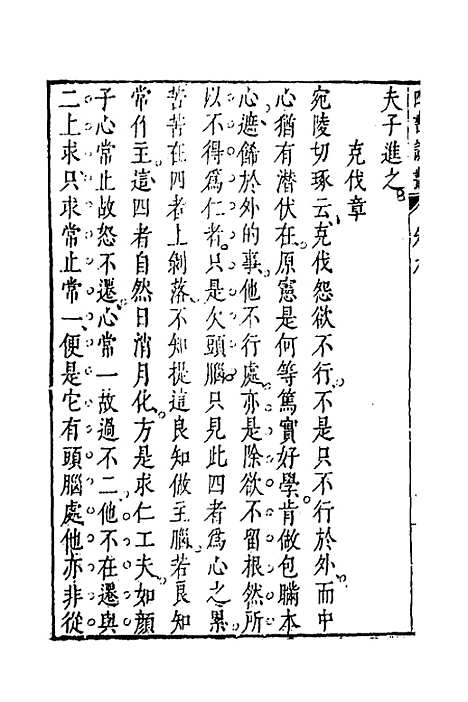 夫子進之
克伐章
宛陵切琢云克伐怨欲不行不是只不行於外而中
心猶有潛伏在原憲是何等篤實好學肯做包瞞本
心遮餙於外的事他不行處亦是除欲不留根然所
以不得爲仁者只是欠頭腦只見此四者爲心之累
苦苦在四者上剝落不知提這良知做主腦若良知
常作主這四者自然日消月化方是求仁工夫如顔
子心常止故怒不遷心常一故過不二他不在遷與
二上求只求常止常一便是它有頭腦處他亦非從